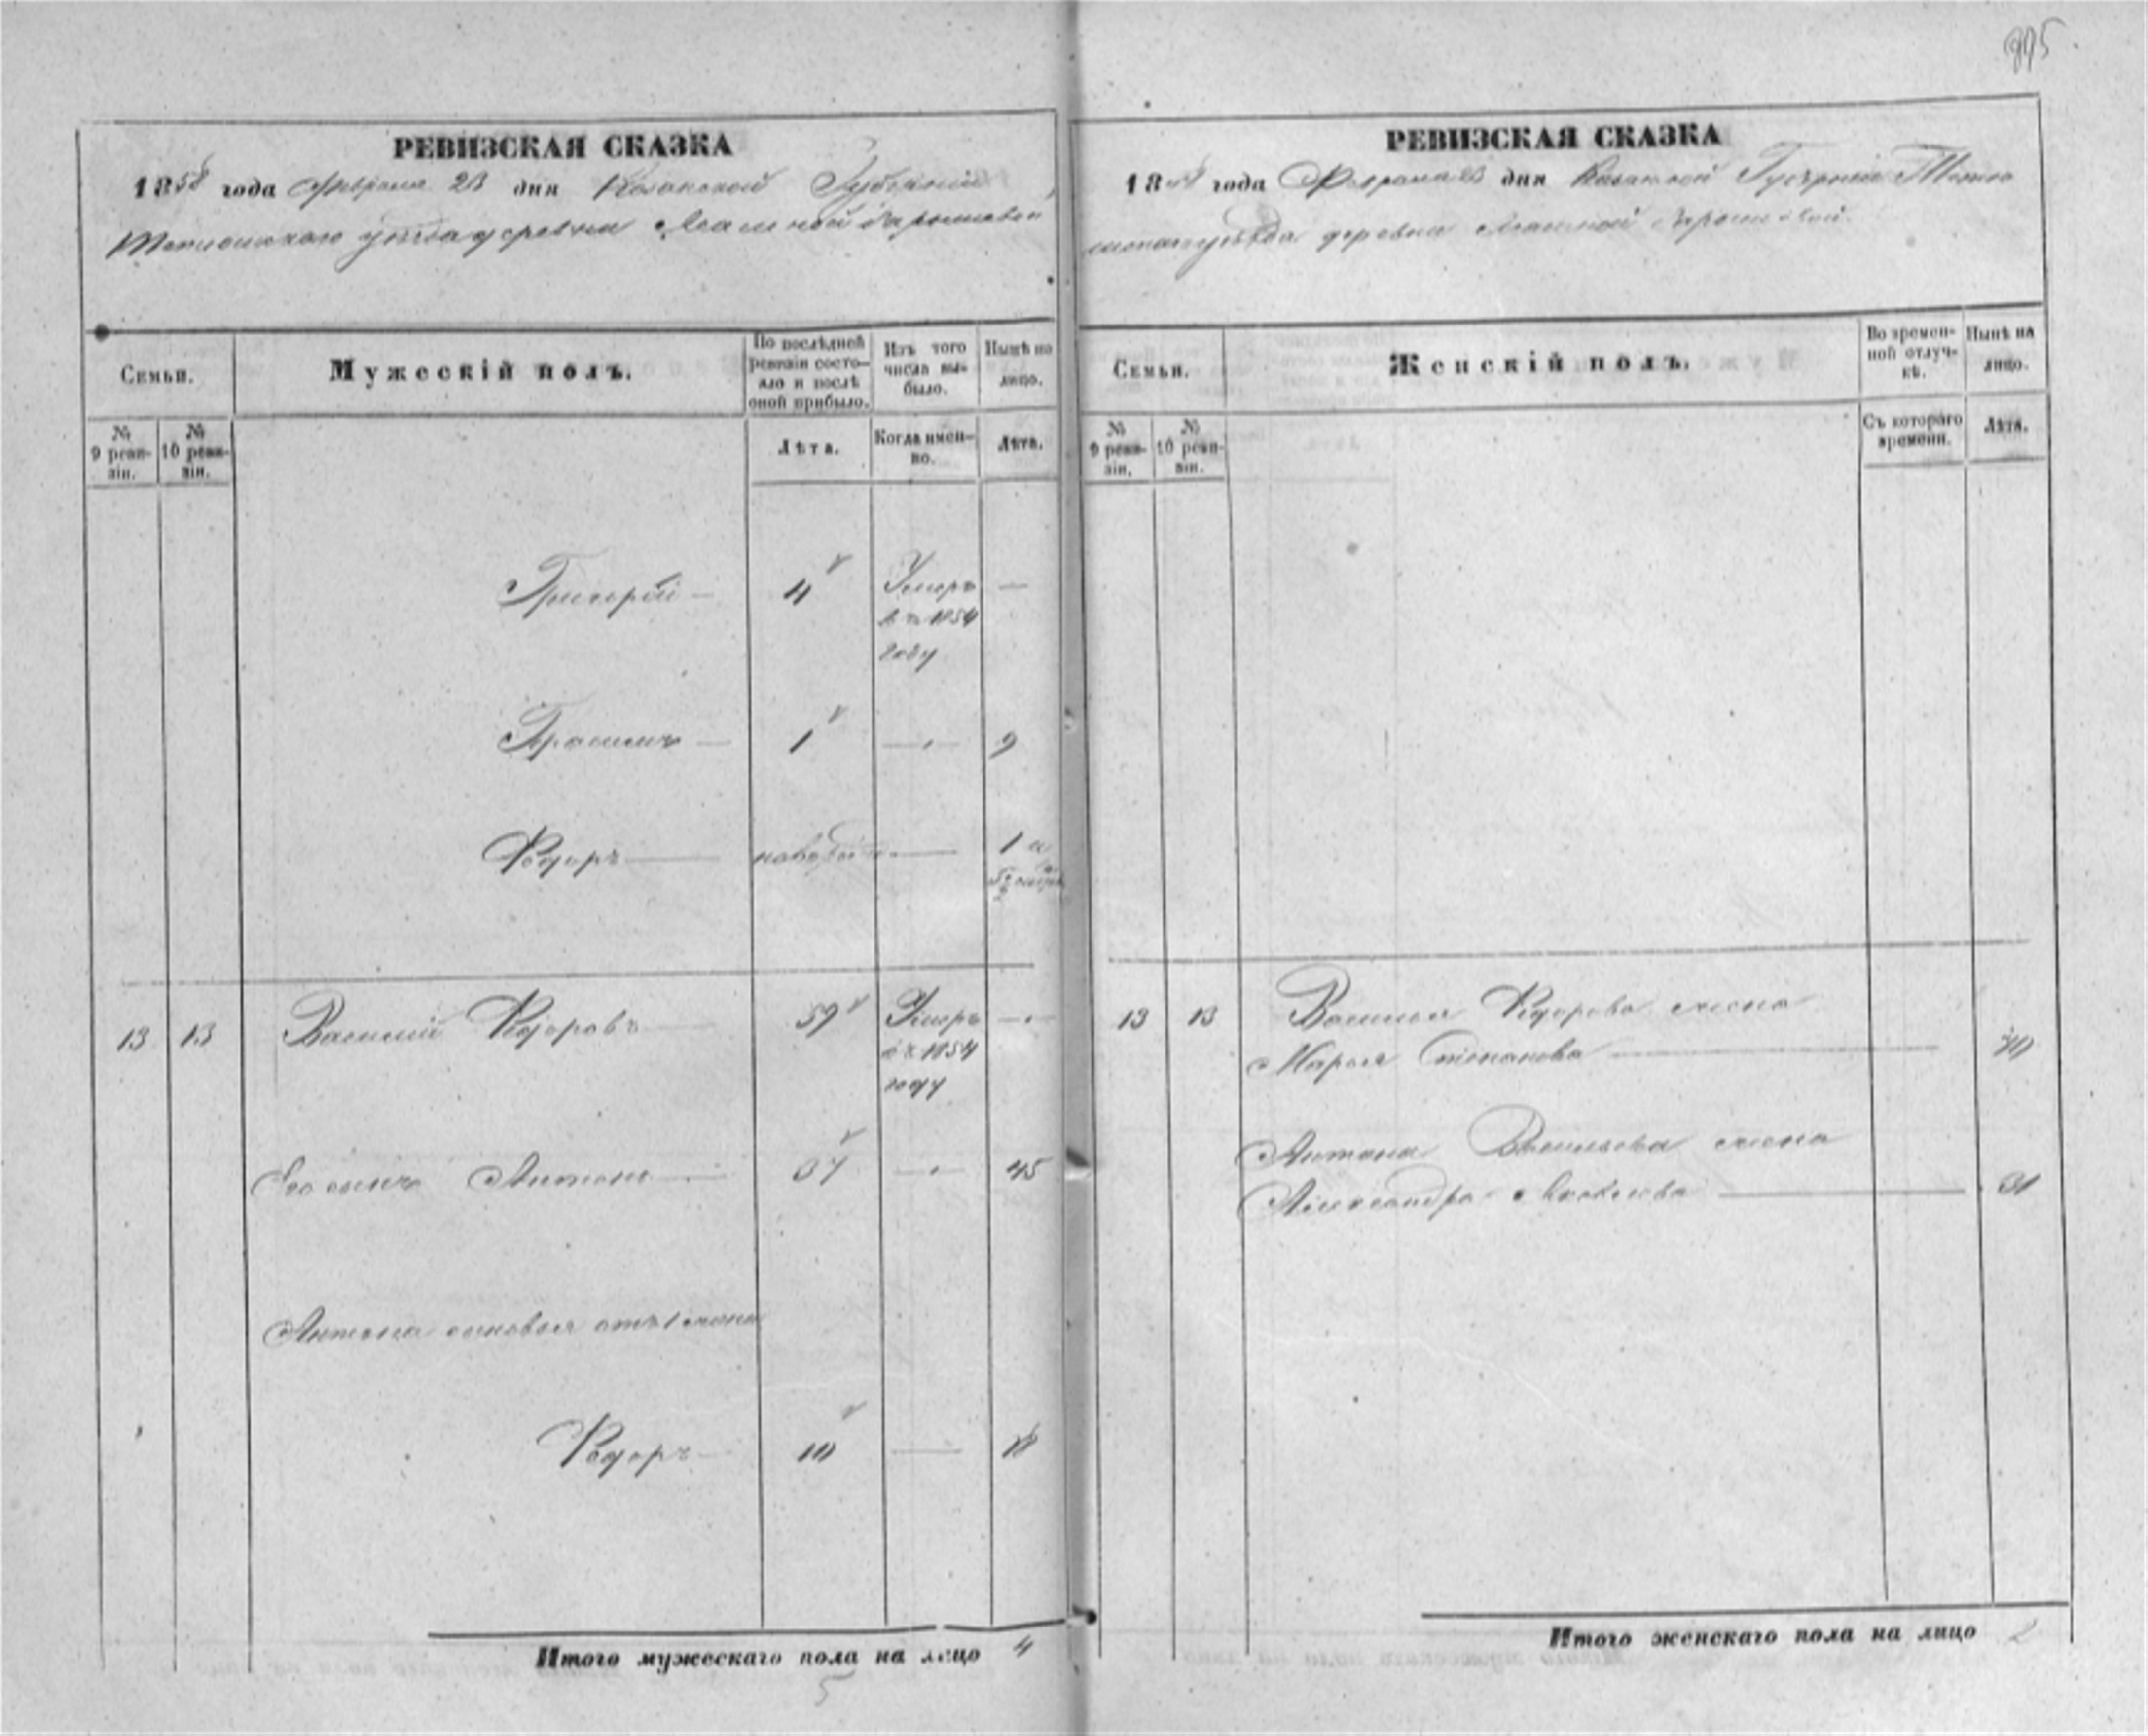 РЕВИЗСКАЯ СКАЗКА
1858 года Февраля 23 дня Казанской Губерніи
уѣзда деревни
Семьи.
Мужескій полъ.
По послѣдней ревизіи состо-
яло и послѣ
оной прибыло.
Изъ того
числа вы-
было.
Нынѣ на
лицо.
№
9 реви-
зіи.
№
10 реви-
зіи.
Лѣта.
Когда имен-
но.
Лѣта.
Григорій — 4 Умеръ —
въ 1854
году
Герасимъ — 1 — 9
Федоръ — — 1 и
13 13 Василий Федоровъ 59 Умеръ —
въ 1854
году
Его сынъ Антонъ — 37 — 45
Антона сыновья отъ 1 жены
Федоръ — 10 — 18
Итого мужескаго пола на лицо 4
5
РЕВИЗСКАЯ СКАЗКА
18 года Февраля 23 дня Казанской Губерніи
уѣзда деревни
Семьи.
Женскій полъ.
Во времен-
ной отлуч-
кѣ.
Нынѣ на
лицо.
№
9 реви-
зіи.
№
10 реви-
зіи.
Съ котораго
времени.
Лѣта.
13 13 Василья Федорова жена
Марья Степанова —
Антона Васильева жена
Александра Яковлева — 31
Итого женскаго пола на лицо 2